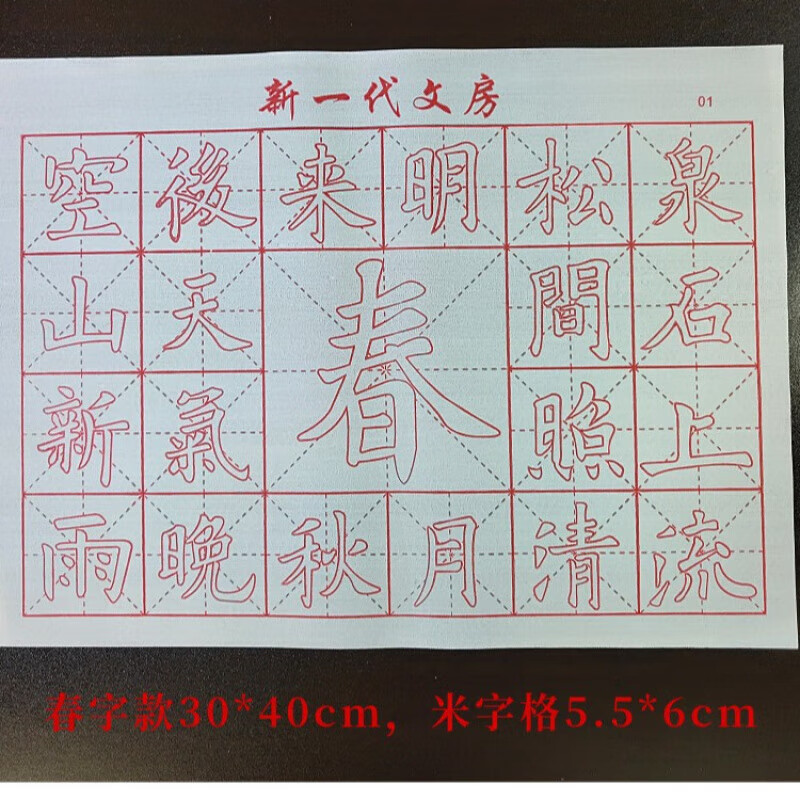 新一代文房
01
空山新雨
後天氣晚
来秋
明月
松間照清
泉石上流
春
春字款30*40cm，米字格5.5*6cm